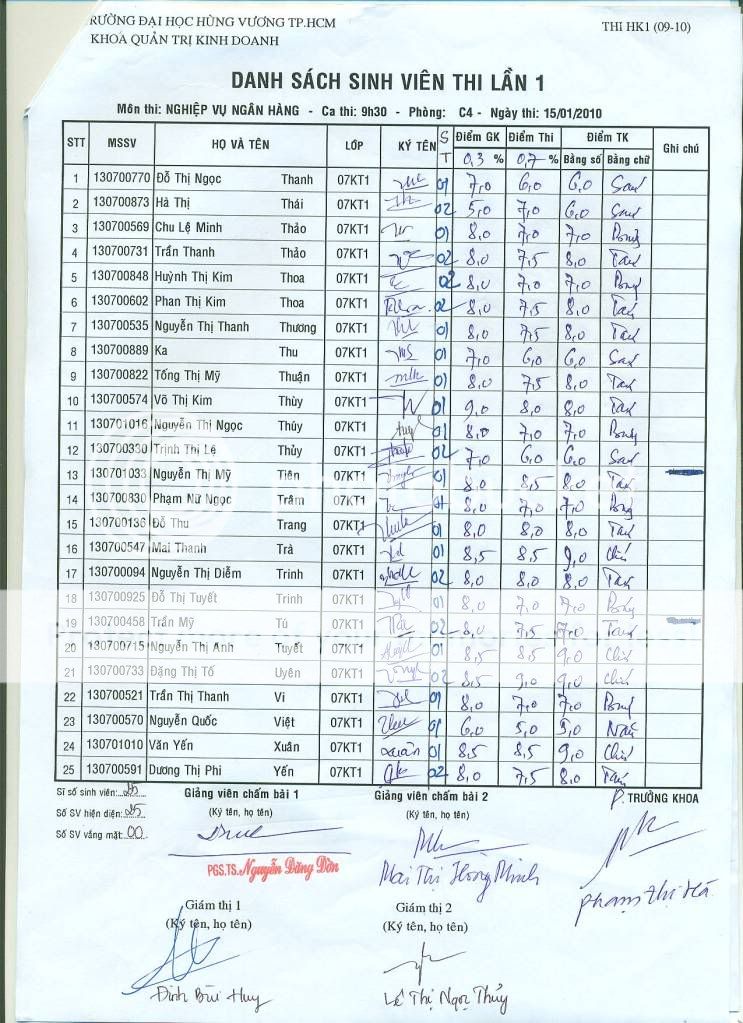 RƯỜNG ĐẠI HỌC HÙNG VƯƠNG TP.HCM THI HK1 (09-10)
KHOA QUẢN TRỊ KINH DOANH
DANH SÁCH SINH VIÊN THI LẦN 1
Môn thi: NGHIỆP VỤ NGÂN HÀNG - Ca thi: 9h30 - Phòng: C4 - Ngày thi: 15/01/2010
STT MSSV HỌ VÀ TÊN LỚP KÝ TÊN ST Điểm GK Điểm Thi Điểm TK Ghi chú
0,3 % 0,7 % Bằng số Bằng chữ
1 130700770 Đỗ Thị Ngọc Thanh 07KT1 01 7,0 6,0 6,0 Sáu
2 130700873 Hà Thị Thái 07KT1 02 5,0 7,0 6,0 Sáu
3 130700569 Chu Lệ Minh Thảo 07KT1 01 8,0 7,0 7,0 Bảy
4 130700731 Trần Thanh Thảo 07KT1 02 8,0 7,5 8,0 Tám
5 130700848 Huỳnh Thị Kim Thoa 07KT1 02 8,0 7,0 7,0 Bảy
6 130700602 Phan Thị Kim Thoa 07KT1 02 8,0 7,5 8,0 Tám
7 130700535 Nguyễn Thị Thanh Thương 07KT1 01 8,0 7,5 8,0 Tám
8 130700889 Ka Thu 07KT1 01 7,0 6,0 6,0 Sáu
9 130700822 Tống Thị Mỹ Thuận 07KT1 01 8,0 7,5 8,0 Tám
10 130700574 Võ Thị Kim Thùy 07KT1 01 9,0 8,0 8,0 Tám
11 130701016 Nguyễn Thị Ngọc Thúy 07KT1 01 8,0 7,0 7,0 Bảy
12 130700330 Trịnh Thị Lệ Thủy 07KT1 02 7,0 6,0 6,0 Sáu
13 130701033 Nguyễn Thị Mỹ Tiên 07KT1 01 8,0 8,5 8,0 Tám
14 130700830 Phạm Nữ Ngọc Trâm 07KT1 01 8,0 7,0 7,0 Bảy
15 130700136 Đỗ Thu Trang 07KT1 01 8,0 8,0 8,0 Tám
16 130700547 Mai Thanh Trà 07KT1 01 8,5 8,5 9,0 Chín
17 130700094 Nguyễn Thị Diễm Trinh 07KT1 02 8,0 8,0 8,0 Tám
18 130700925 Đỗ Thị Tuyết Trinh 07KT1 01 8,0 7,0 7,0 Bảy
19 130700458 Trần Mỹ Tú 07KT1 02 8,0 7,5 Tám
20 130700715 Nguyễn Thị Anh Tuyết 07KT1 01 8,5 8,5 9,0 Chín
21 130700733 Đặng Thị Tố Uyên 07KT1 02 8,5 9,0 9,0 Chín
22 130700521 Trần Thị Thanh Vi 07KT1 01 8,0 7,0 7,0 Bảy
23 130700570 Nguyễn Quốc Việt 07KT1 01 6,0 5,0 5,0 Năm
24 130701010 Văn Yến Xuân 07KT1 Xuân 01 8,5 8,5 9,0 Chín
25 130700591 Dương Thị Phi Yến 07KT1 02 8,0 7,5 8,0 Tám
Sĩ số sinh viên: 25 Giảng viên chấm bài 1 Giảng viên chấm bài 2 P. TRƯỞNG KHOA
Số SV hiện diện: 25 (Ký tên, họ tên) (Ký tên, họ tên)
Số SV vắng mặt: 00
PGS.TS. Nguyễn Đăng Dờn Mai Thị Hồng Minh Phạm Thị Hà
Giám thị 1 Giám thị 2
(Ký tên, họ tên) (Ký tên, họ tên)
Đinh Bùi Huy Lê Thị Ngọc Thủy